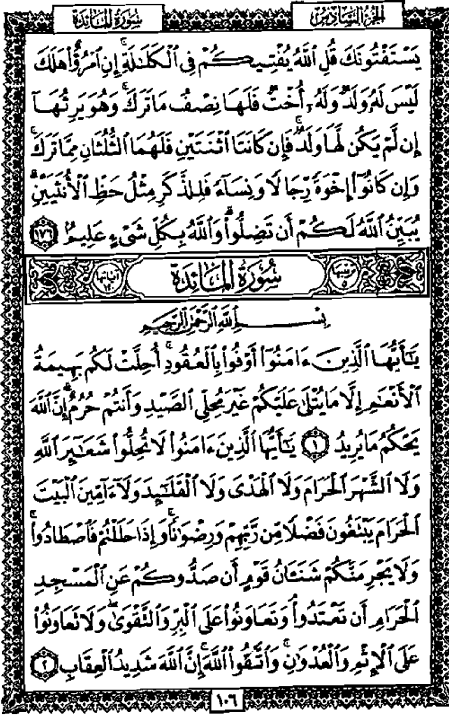 سُورَةُ المَائدَة
الجزءُ السَّادِسُ
يَسْتَفْتُونَكَ قُلِ ٱللَّهُ يُفْتِيكُمْ فِى ٱلْكَلَـٰلَةِ ۚ إِنِ ٱمْرُؤٌا۟ هَلَكَ
لَيْسَ لَهُۥ وَلَدٌ وَلَهُۥٓ أُخْتٌ فَلَهَا نِصْفُ مَا تَرَكَ ۚ وَهُوَ يَرِثُهَآ
إِن لَّمْ يَكُن لَّهَا وَلَدٌ ۚ فَإِن كَانَتَا ٱثْنَتَيْنِ فَلَهُمَا ٱلثُّلُثَانِ مِمَّا تَرَكَ ۚ
وَإِن كَانُوٓا۟ إِخْوَةً رِّجَالًا وَنِسَآءً فَلِلذَّكَرِ مِثْلُ حَظِّ ٱلْأُنثَيَيْنِ ۗ
يُبَيِّنُ ٱللَّهُ لَكُمْ أَن تَضِلُّوا۟ ۗ وَٱللَّهُ بِكُلِّ شَىْءٍ عَلِيمٌۢ ١٧٦
سُورَةُ المَائدَة
بِسْمِ ٱللَّهِ ٱلرَّحْمَـٰنِ ٱلرَّحِيمِ
يَـٰٓأَيُّهَا ٱلَّذِينَ ءَامَنُوٓا۟ أَوْفُوا۟ بِٱلْعُقُودِ ۚ أُحِلَّتْ لَكُم بَهِيمَةُ
ٱلْأَنْعَـٰمِ إِلَّا مَا يُتْلَىٰ عَلَيْكُمْ غَيْرَ مُحِلِّى ٱلصَّيْدِ وَأَنتُمْ حُرُمٌ ۗ إِنَّ ٱللَّهَ
يَحْكُمُ مَا يُرِيدُ ١ يَـٰٓأَيُّهَا ٱلَّذِينَ ءَامَنُوا۟ لَا تُحِلُّوا۟ شَعَـٰٓئِرَ ٱللَّهِ
وَلَا ٱلشَّهْرَ ٱلْحَرَامَ وَلَا ٱلْهَدْىَ وَلَا ٱلْقَلَـٰٓئِدَ وَلَآ ءَآمِّينَ ٱلْبَيْتَ
ٱلْحَرَامَ يَبْتَغُونَ فَضْلًا مِّن رَّبِّهِمْ وَرِضْوَٰنًا ۚ وَإِذَا حَلَلْتُمْ فَٱصْطَادُوا۟ ۚ
وَلَا يَجْرِمَنَّكُمْ شَنَـَٔانُ قَوْمٍ أَن صَدُّوكُمْ عَنِ ٱلْمَسْجِدِ
ٱلْحَرَامِ أَن تَعْتَدُوا۟ ۘ وَتَعَاوَنُوا۟ عَلَى ٱلْبِرِّ وَٱلتَّقْوَىٰ ۖ وَلَا تَعَاوَنُوا۟
عَلَى ٱلْإِثْمِ وَٱلْعُدْوَٰنِ ۚ وَٱتَّقُوا۟ ٱللَّهَ ۖ إِنَّ ٱللَّهَ شَدِيدُ ٱلْعِقَابِ ٢
١٠٦